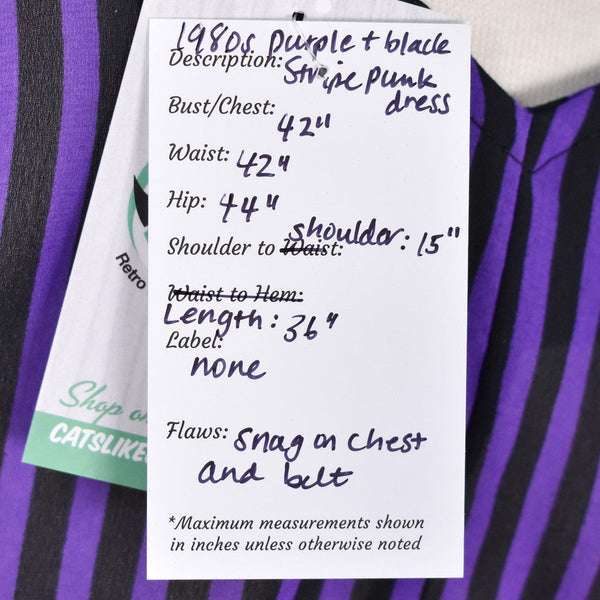 1980s purple + black
Description: stripe punk
dress
Bust/Chest: 42"
Waist: 42"
Hip: 44"
Shoulder to Waist: shoulder: 15"
Waist to Hem:
Length: 36"
Label:
none
Flaws: snag on chest
and belt
*Maximum measurements shown
in inches unless otherwise noted
Retro
Shop on
CATSLIKE